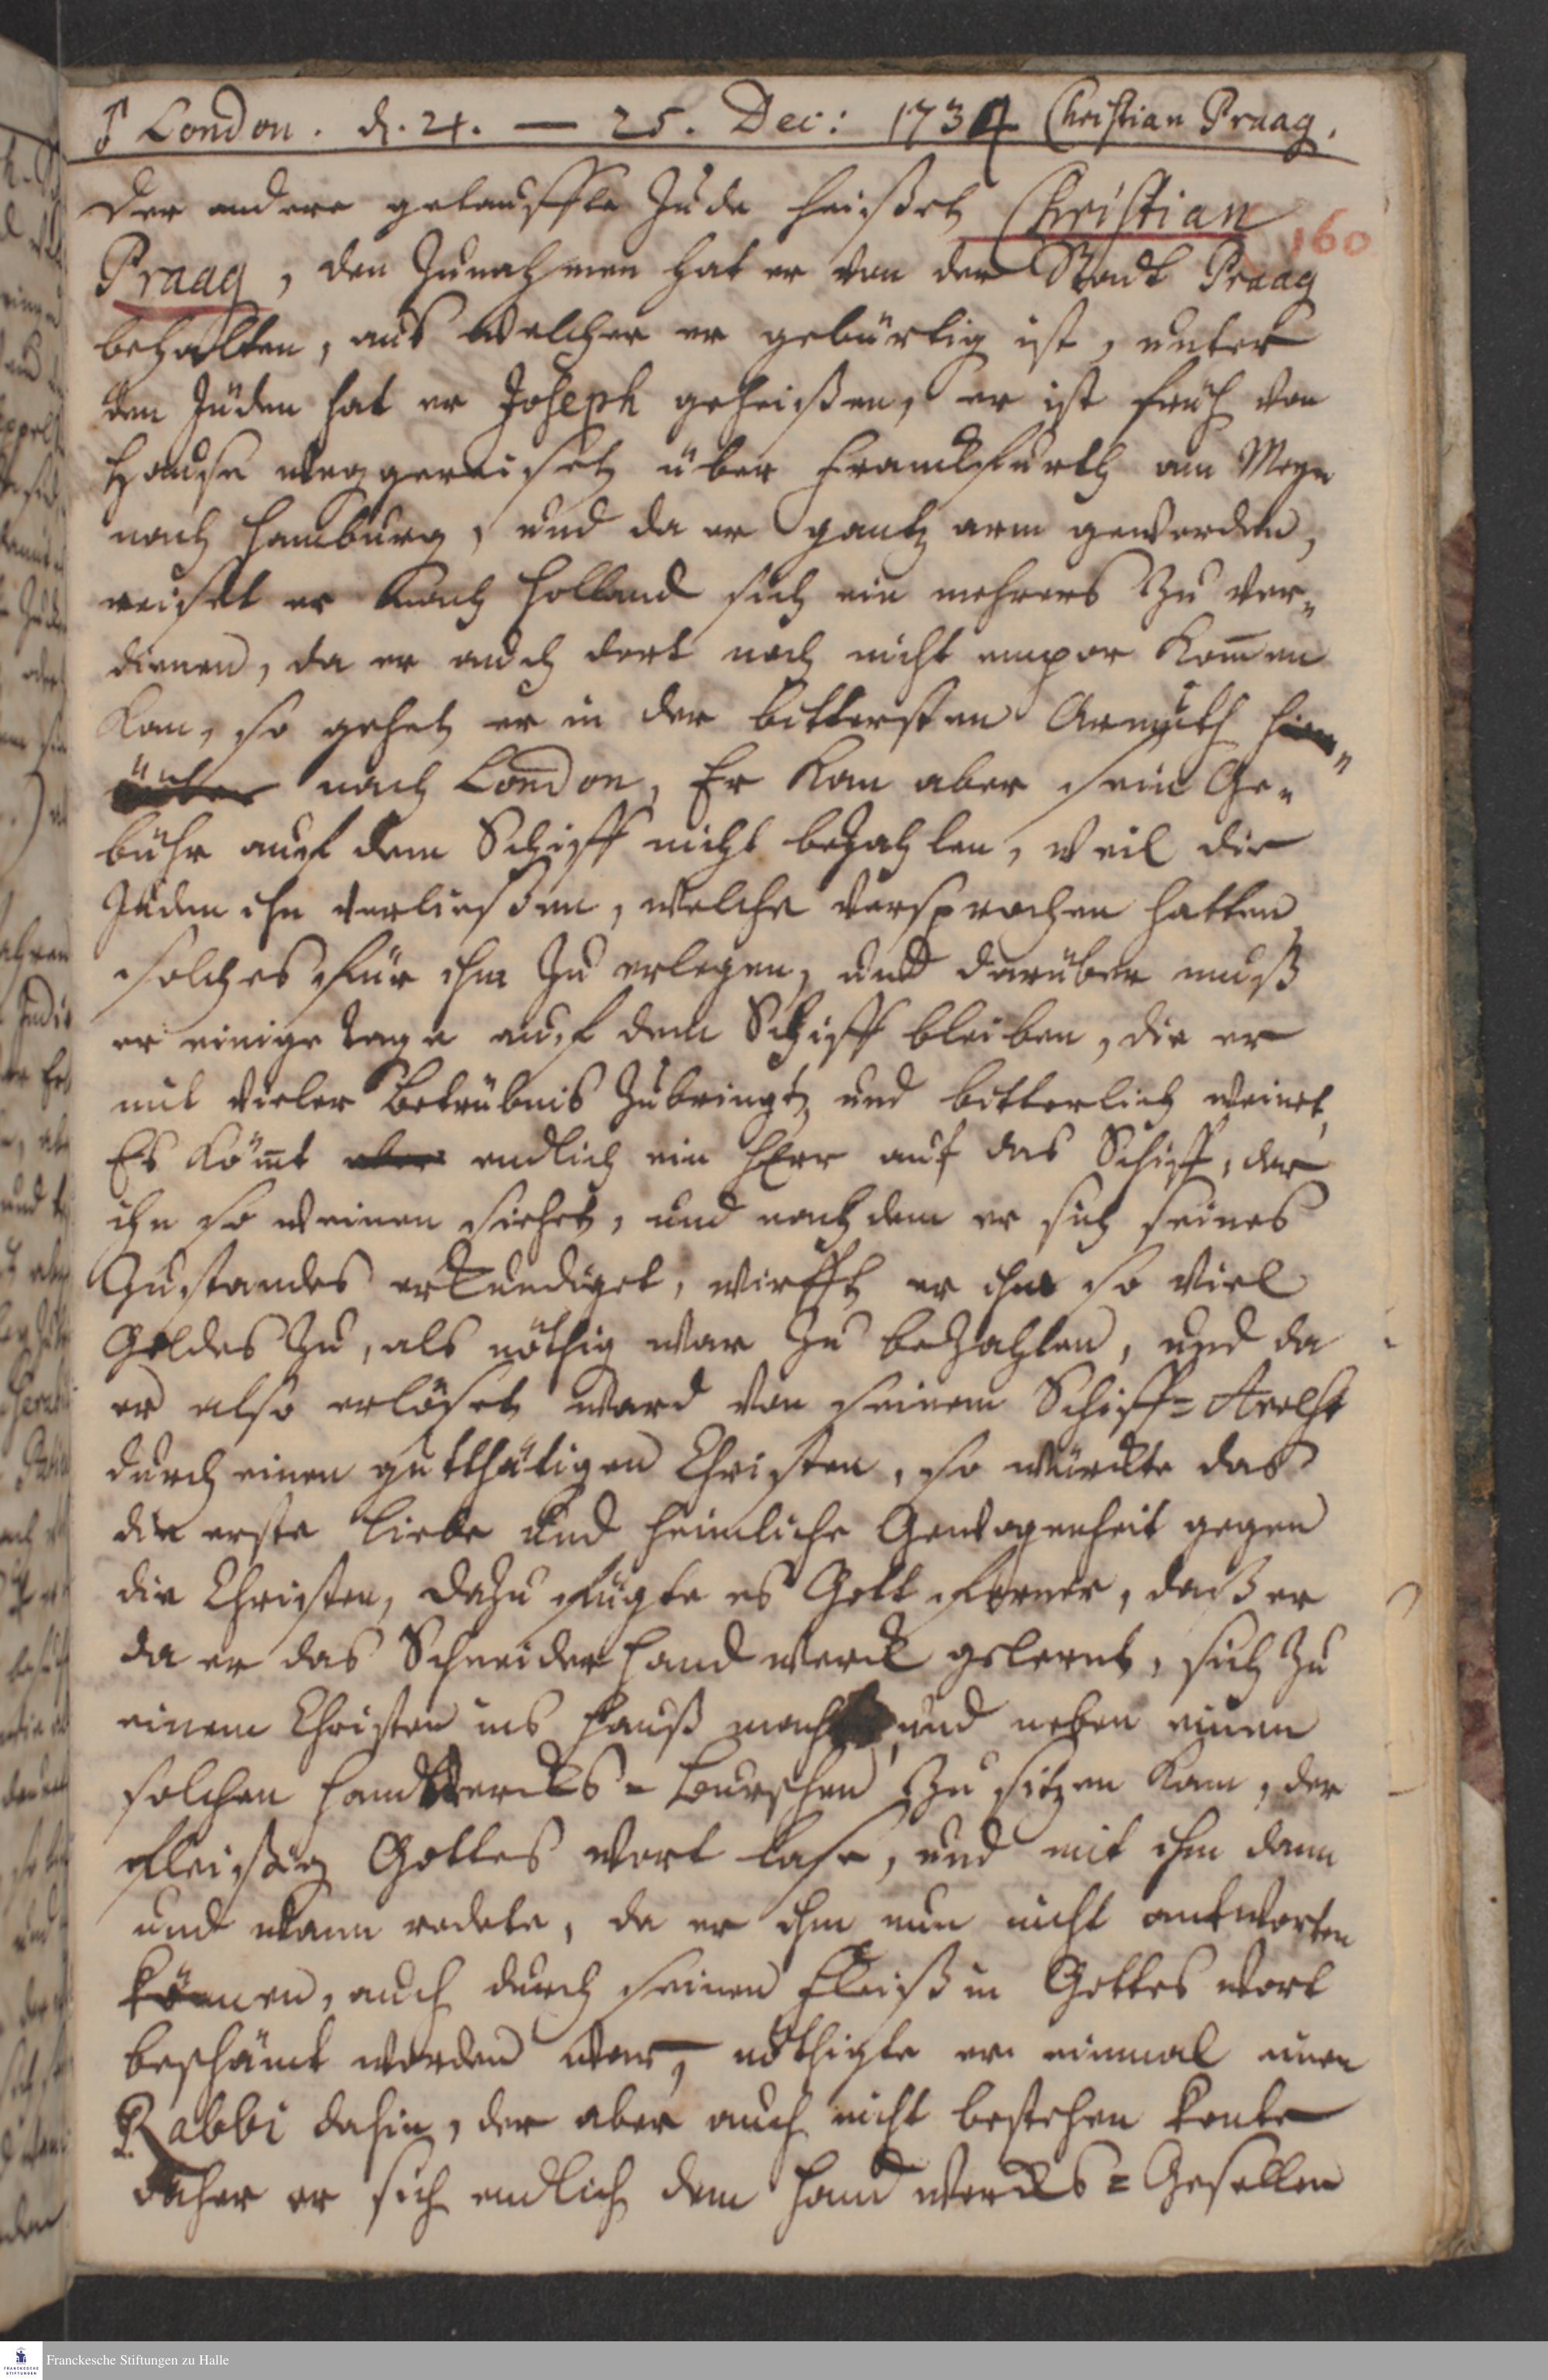 London. d. 24. — 25. Dec: 1734 Christian Praag.
160
Der andere getauffte Jude heißet Christian
Praag, den Zunahmen hat er von der Stadt Praag
behalten, aus welcher er gebürtig ist, unter
den Jüden hat er Joseph geheißen, er ist früh von
Hause weggereiset über Franckfurth am Meyn
nach Hamburg, und da er gantz arm geworden,
reiset er nach Holland sich ein mehrers zu ver-
dienen, da er auch dort noch nicht empor kom̄en
kan, so gehet er in der bittersten Armuth
nach London, Er kan aber sein Ge-
bühr auf dem Schiff nicht bezahlen, weil die
Juden ihn verließen, welche versprochen hatten
solches für ihn zu erlegen, und darüber muß
er einige tage auf dem Schiff bleiben, die er
mit vieler Betrübnis zubringt, und bitterlich weinet,
Es köm̄t aber endlich ein HErr auf das Schiff, der
ihn so weinen siehet, und nach dem er sich seines
Zustandes erkundiget, wirfft er ihm so viel
Geldes zu, als nöthig war zu bezahlen, und da
er also erlöset ward von seinem Schiff-Arrest
durch einen gutthätigen Christen, so würckte das
die erste Liebe und heimliche Gewogenheit gegen
die Christen, dazu fügte es Gott ferner, daß er
da er das Schneider Handwerck gelernt, sich zu
einem Christen ins Hauß macht und neben einen
solchen Handwercks-Burschen zu sitzen kam, der
fleißig Gottes Wort lase, und mit ihm dann
und wann redete, da er ihm nun nicht antworten
können, auch durch seinen Fleiß in Gottes Wort
beschämt worden war, nöthigte er einmal einen
Rabbi dahin, der aber auch nicht bestehen konte
daher er sich endlich dem Handwercks-Gesellen
Franckesche Stiftungen zu Halle